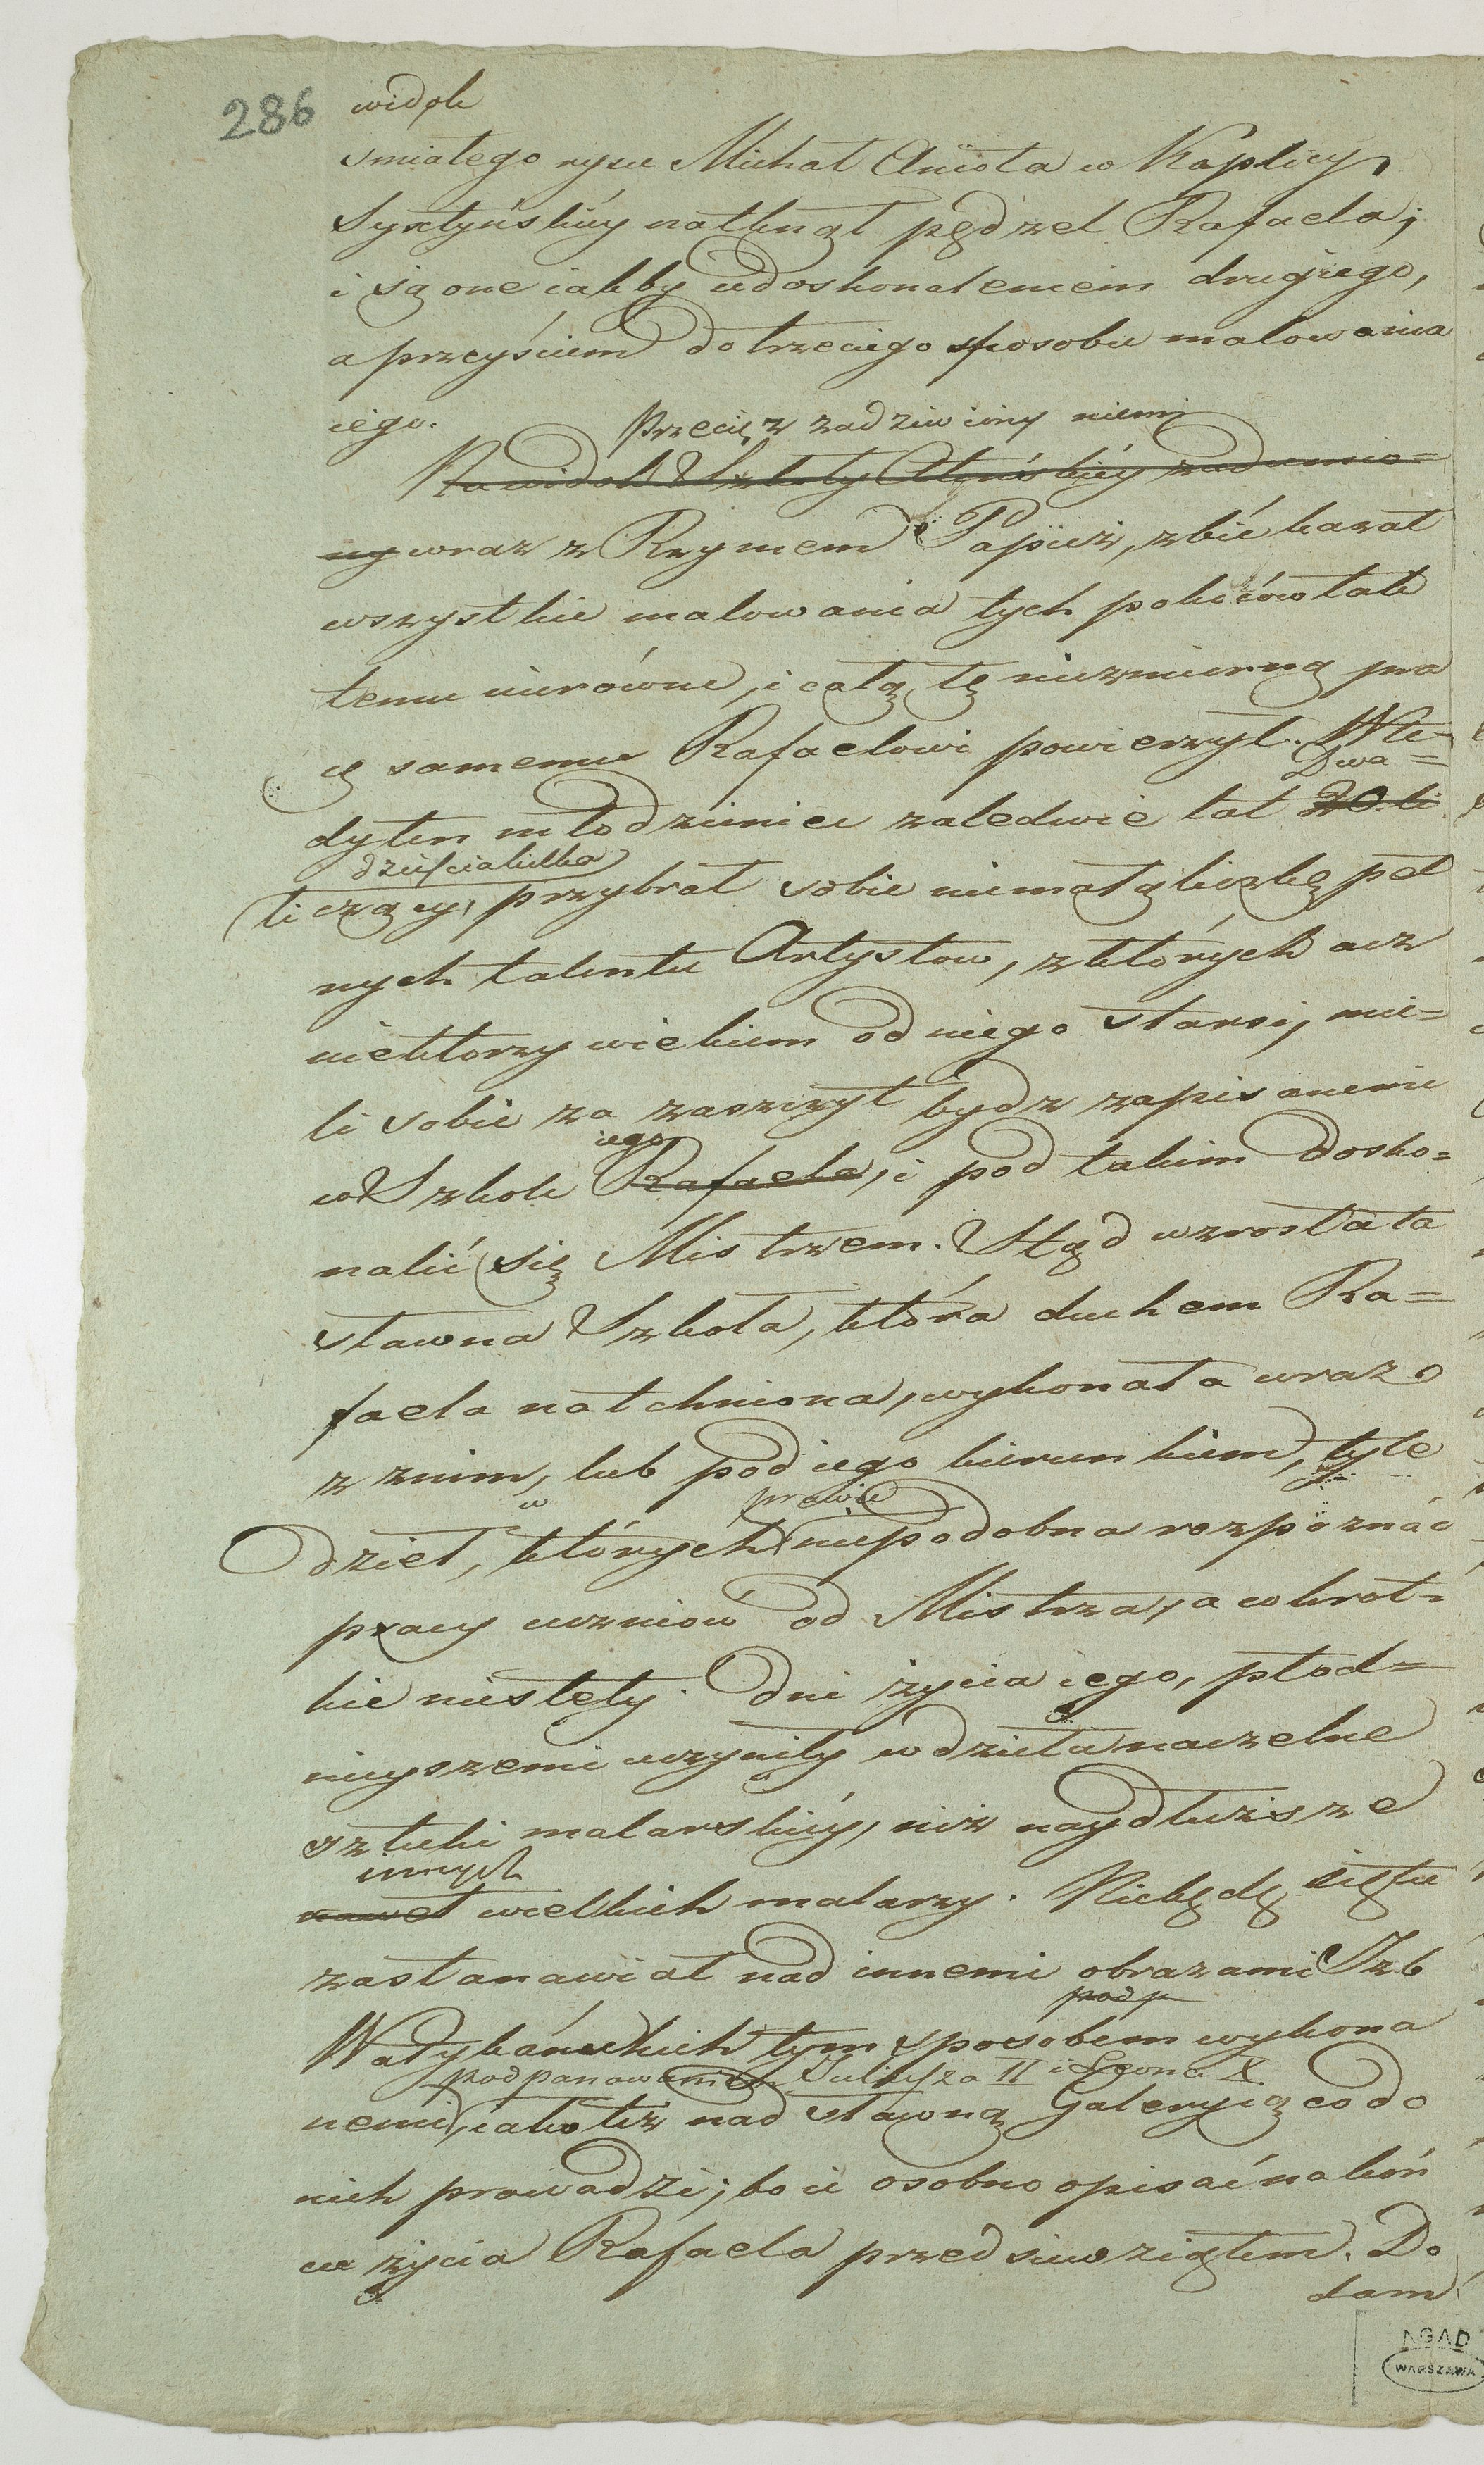 286 widok
smiałego rysu Michał Anioła w Kaplicy
Syxtyńskiéy natknął pędzel Rafaela;
i są one iakby udoskonaleniem drugiego,
a przeyściem do trzeciego sposobu malowania
iego. Przecięż zadziwiony niemi
Na widok Szkoły Atyńskiéy zadumio=
ny wraz z Rzymem Papież, zbić kazał
wszystkie malowania tych pokoiów tak
temu nierówne, i całą tę niezmierną pra
cę samemu Rafaelowi powierzył. Wte-
Dwa=
dy ten młodzieniec zaledwie lat 20. li
dzieścia kilka
liczący, przybrał sobie niemałą liczbę peł
nych talentu Artystow, z których acz
niektorzy wiekiem od niego starsi, mie=
li sobie za zaszczyt bydz zapisanemi
iego
w Szkole Rafaela, i pod takim dosko=
nalić się Mistrzem. Ztąd wzrosła ta
sławna Szkoła, która duchem Ra=
faela natchniona, wykonała wraz
z znim, lub pod iego kierunkiem, tyle
w prawie
dzieł, których niepodobna rozpoznać
pracy uczniow od Mistrza, a w krot=
kie niestety dni życia iego, płod=
nieyszemi uczyniły w dzieła naczelne
sztuki malarskiéy, niż naydłuższe
innych
nawet wielkich malarzy. Niebędę się tu
zastanawiał nad innemi obrazami Izb
pod p
Watykańskich tym sposobem wykona
pod panowaniem Juliusza II i Leona X.
nemi, iako też nad sławną Galeryią co do
nich prowadzi; bo ie osobno opisać na koń
cu życia Rafaela przedsiewziąłem. Do
dam
AGAD
WARSZAWA